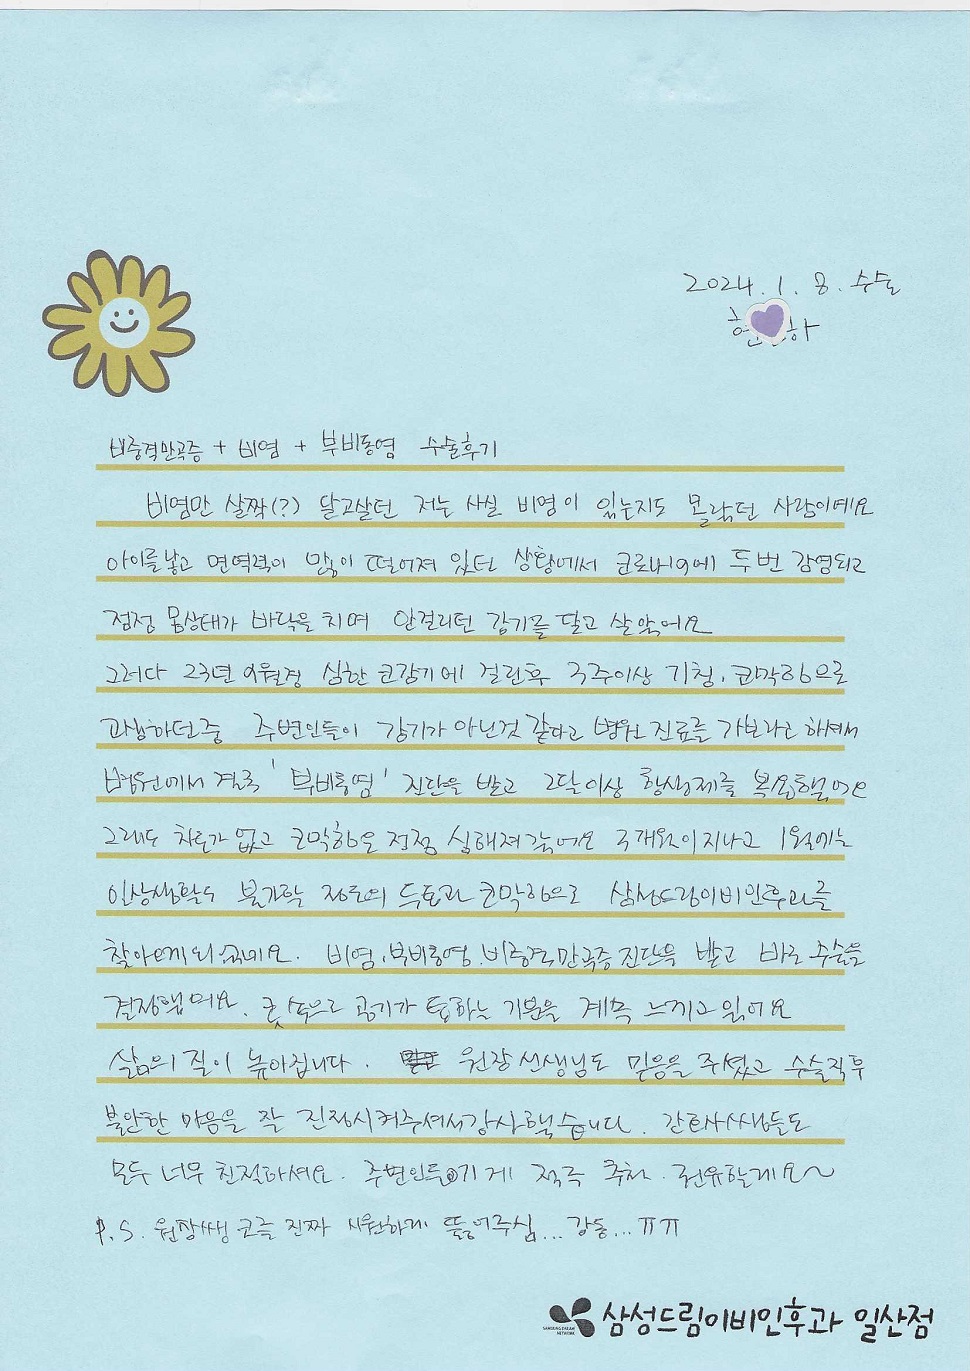 2024. 1. 8. 수술
하
비중격만곡증 + 비염 + 부비동염 수술후기
비염만 살짝(?) 달고살던 저는 사실 비염이 있는지도 몰랐던 사람이예요
아이를낳고 면역력이 많이 떨어져 있던 상황에서 코로나19에 두번 감염되고
점점 몸상태가 바닥을 치며 안걸리던 감기를 달고 살았어요
그러다 23년 9월경 심한 코감기에 걸린후 3주이상 기침, 코막힘으로
고생하던중 주변인들이 감기가 아닌것 같다고 병원 진료를 가보라고 하셔서
병원에서 결국 '부비동염' 진단을 받고 2달이상 항생제를 복용했어요
그래도 차도가 없고 코막힘은 점점 심해져갔어요 3개월이 지나고 1월에는
일상생활도 불가한 정도의 두통과 코막힘으로 삼성드림이비인후과를
찾아오게 되었네요. 비염, 부비동염, 비중격만곡증 진단을 받고 바로 수술을
결정했어요. 콧속으로 공기가 통하는 기분을 계속 느끼고 있어요
삶의 질이 높아집니다. 원장선생님도 믿음을 주셨고 수술직후
불안한 마음을 잘 진정시켜주셔서 감사했습니다. 간호사쌤들도
모두 너무 친절하셔요. 주변인들에게 적극 추천. 권유할게요~
P.S. 원장쌤 코를 진짜 시원하게 뚫어주심... 감동... ㅠㅠ
SAMSUNG DREAM NETWORK 삼성드림이비인후과 일산점